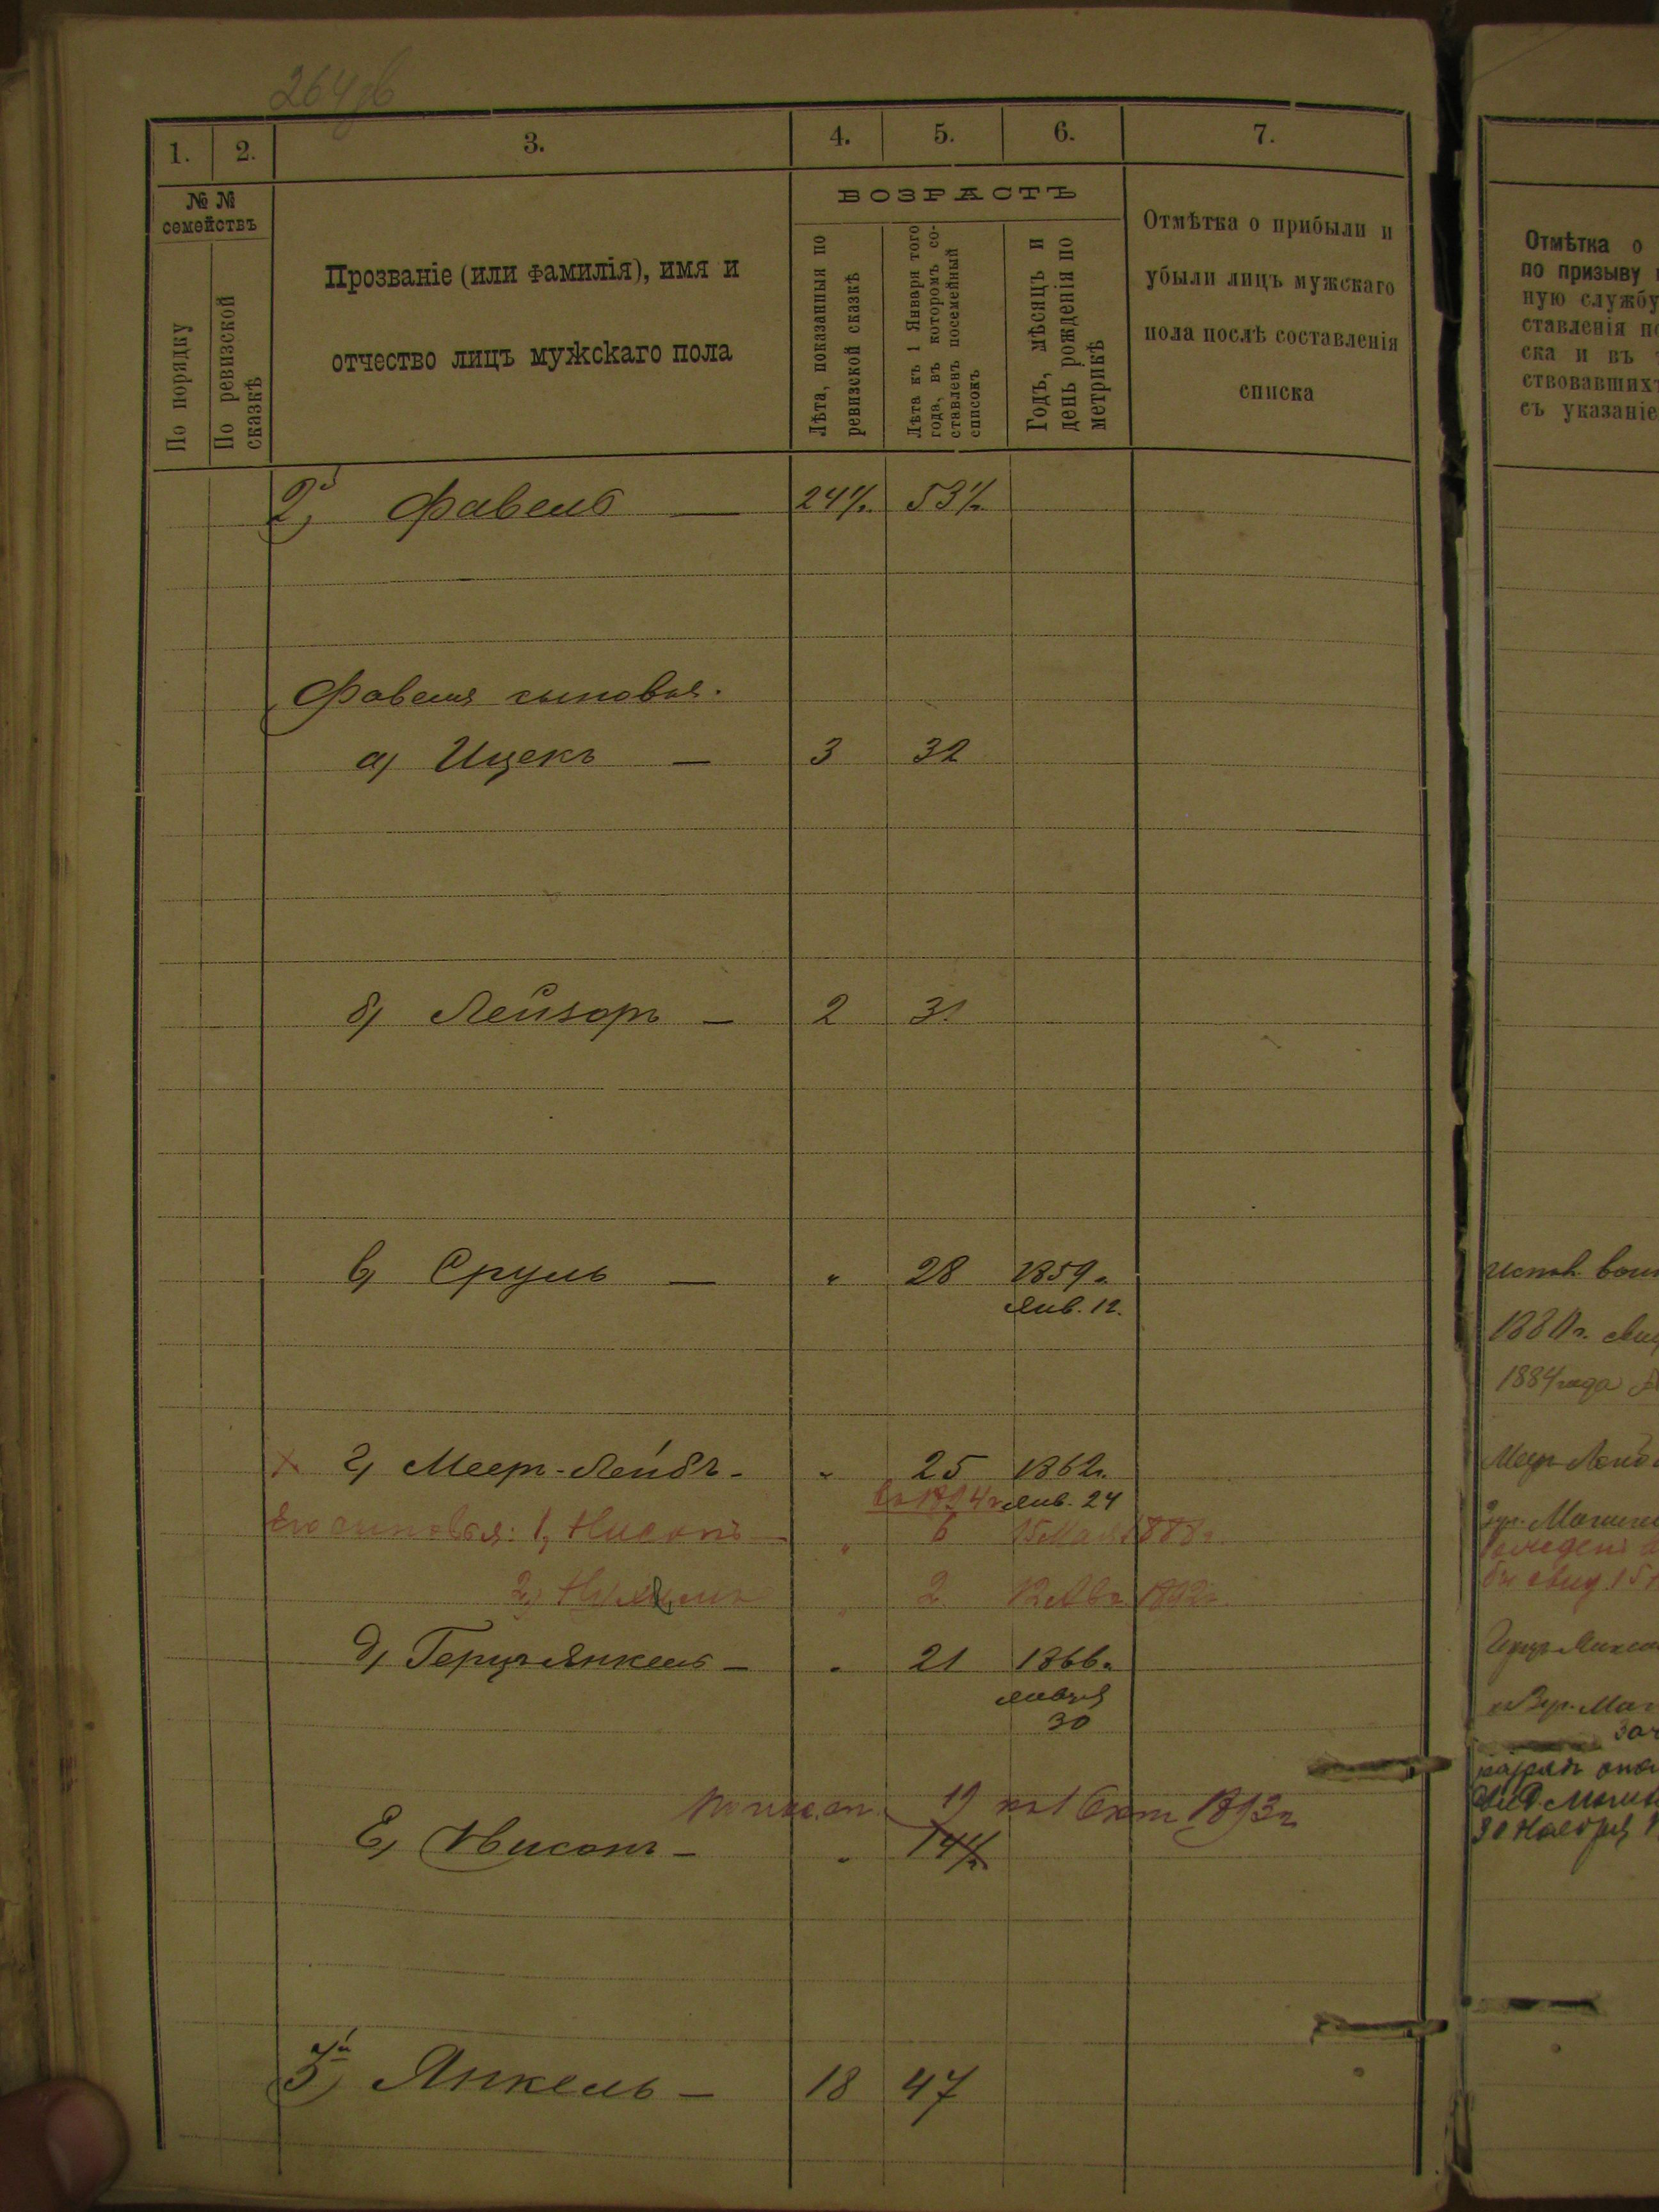 264об
1. 2. 3. 4. 5. 6. 7.
№ №
семействъ
По порядку
По ревизской
сказкѣ
Прозваніе (или фамилія), имя и
отчество лицъ мужскаго пола
ВОЗРАСТЪ
Лѣта, показанныя по
ревизской сказкѣ
Лѣта къ 1 Января того
года, въ которомъ со-
ставленъ посемейный
списокъ
Годъ, мѣсяцъ и
день рожденія по
метрикѣ
Отмѣтка о прибыли и
убыли лицъ мужскаго
пола послѣ составленія
списка
2й) Фавель — 24½ 53½
Фавеля сыновья.
а) Ицекъ — 3 32
б) Лейзоръ — 2 31
в) Сруль — „ 28 1859 г.
Янв. 12.
г) Меер-Лейбъ - „ 25 1862 г.
въ 1894 г. Янв. 24
Его сыновья: 1, Нисонъ — „ 6 15 Мая 1888 г.
2) „ 2 12 1892 г.
д) Герцъ Янкель — „ 21 1866 г.
января
30
19 по 1 Окт 1893 г.
Е) Нисонъ — „ 14½
3й) Янкель — 18 47
Отмѣтка о
по призыву
ную службу
ставленія по
ска и въ
ствовавшихъ
съ указаніе
188 г.
1884 года
Меер Лейб
30 Ноября